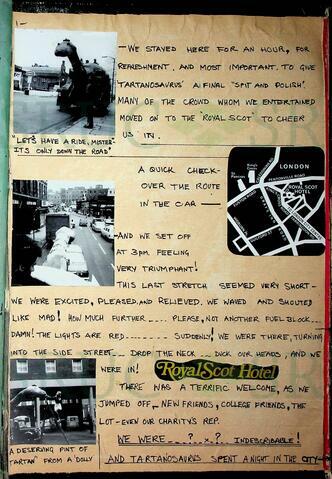 1-
-WE STAYED HERE FOR AN HOUR, FOR
REFRESHMENT, AND MOST IMPORTANT, TO GIVE
TARTANOSAURUS' A FINAL "SPIT AND POLISH".
MANY OF THE CROWD WHOM WE ENTERTAINED
MOVED ON TO THE 'ROYAL SCOT' TO CHEER
US IN.
"LET'S HAVE A RIDE, MISTER-
ITS ONLY DOWN THE ROAD"
A QUICK CHECK-
OVER THE ROUTE
IN THE CAR —
LONDON
PENTONVILLE ROAD
ROYAL SCOT
HOTEL
-AND WE SET OFF
AT 3PM. FEELING
VERY TRIUMPHANT!
THIS LAST STRETCH SEEMED VERY SHORT-
WE WERE EXCITED, PLEASED, AND RELIEVED. WE WAVED AND SHOUTED
LIKE MAD! HOW MUCH FURTHER .... PLEASE, NOT ANOTHER FUEL BLOCK...
DAMN! THE LIGHTS ARE RED........ SUDDENLY! WE WERE THERE, TURNING
INTO THE SIDE STREET.... DROP THE NECK... DUCK OUR HEADS, AND WE
WERE IN! Royal Scot Hotel
THERE WAS A TERRIFIC WELCOME, AS WE
JUMPED OFF. - NEW FRIENDS, COLLEGE FRIENDS, THE
LOT- EVEN OUR CHARITY'S REP.
WE WERE ---?.x.? INDESCRIBABLE!
A DESERVING PINT OF
TARTAN" FROM A 'DOLLY
AND TARTANOSAURUS SPENT A NIGHT IN THE CITY